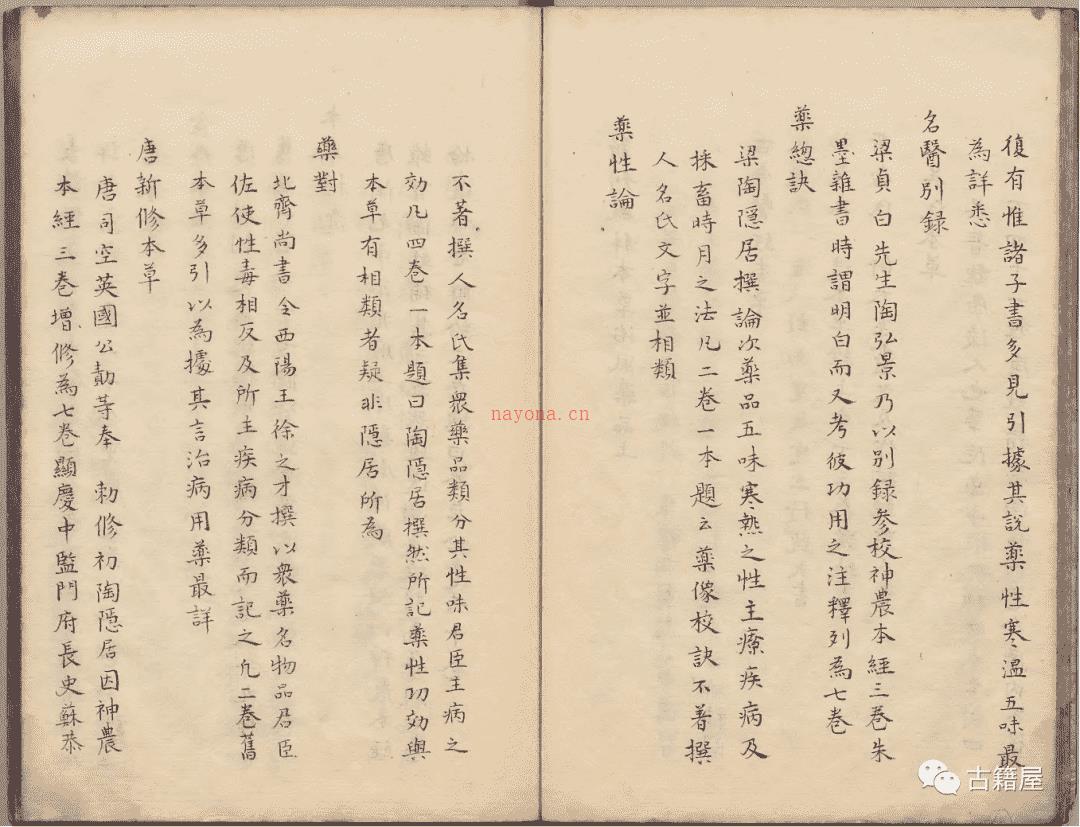 復有惟諸子書多見引據其說藥性寒溫五味最
為詳悉
名醫別録
梁貞白先生陶弘景乃以別録參校神農本經三巻朱
墨雜書時謂明白而又考彼功用之注釋列為七巻
藥總訣
梁陶隱居撰論次藥品五味寒熱之性主療疾病及
採畜時月之法凡二巻一本題云藥像校訣不著撰
人名氏文字並相類
藥性論
不著撰人名氏集衆藥品類分其性味君臣主病之
効凡四巻一本題曰陶隱居撰然所記藥性功効與
本草有相類者疑非隱居所為
藥對
北齊尚書令西陽王徐之才撰以衆藥名物品君臣
佐使性毒相反及所主疾病分類而記之凢二巻舊
本草多引以為據其言治病用藥最詳
唐新修本草
唐司空英國公勣等奉勅修初陶隱居因神農
本經三巻增修為七巻顯慶中監門府長史蘇恭
nayona.cn
古籍屋